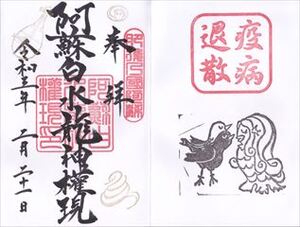 奉拝
阿蘇白水龍神權現
令和三年二月二十一日
疫病
退散